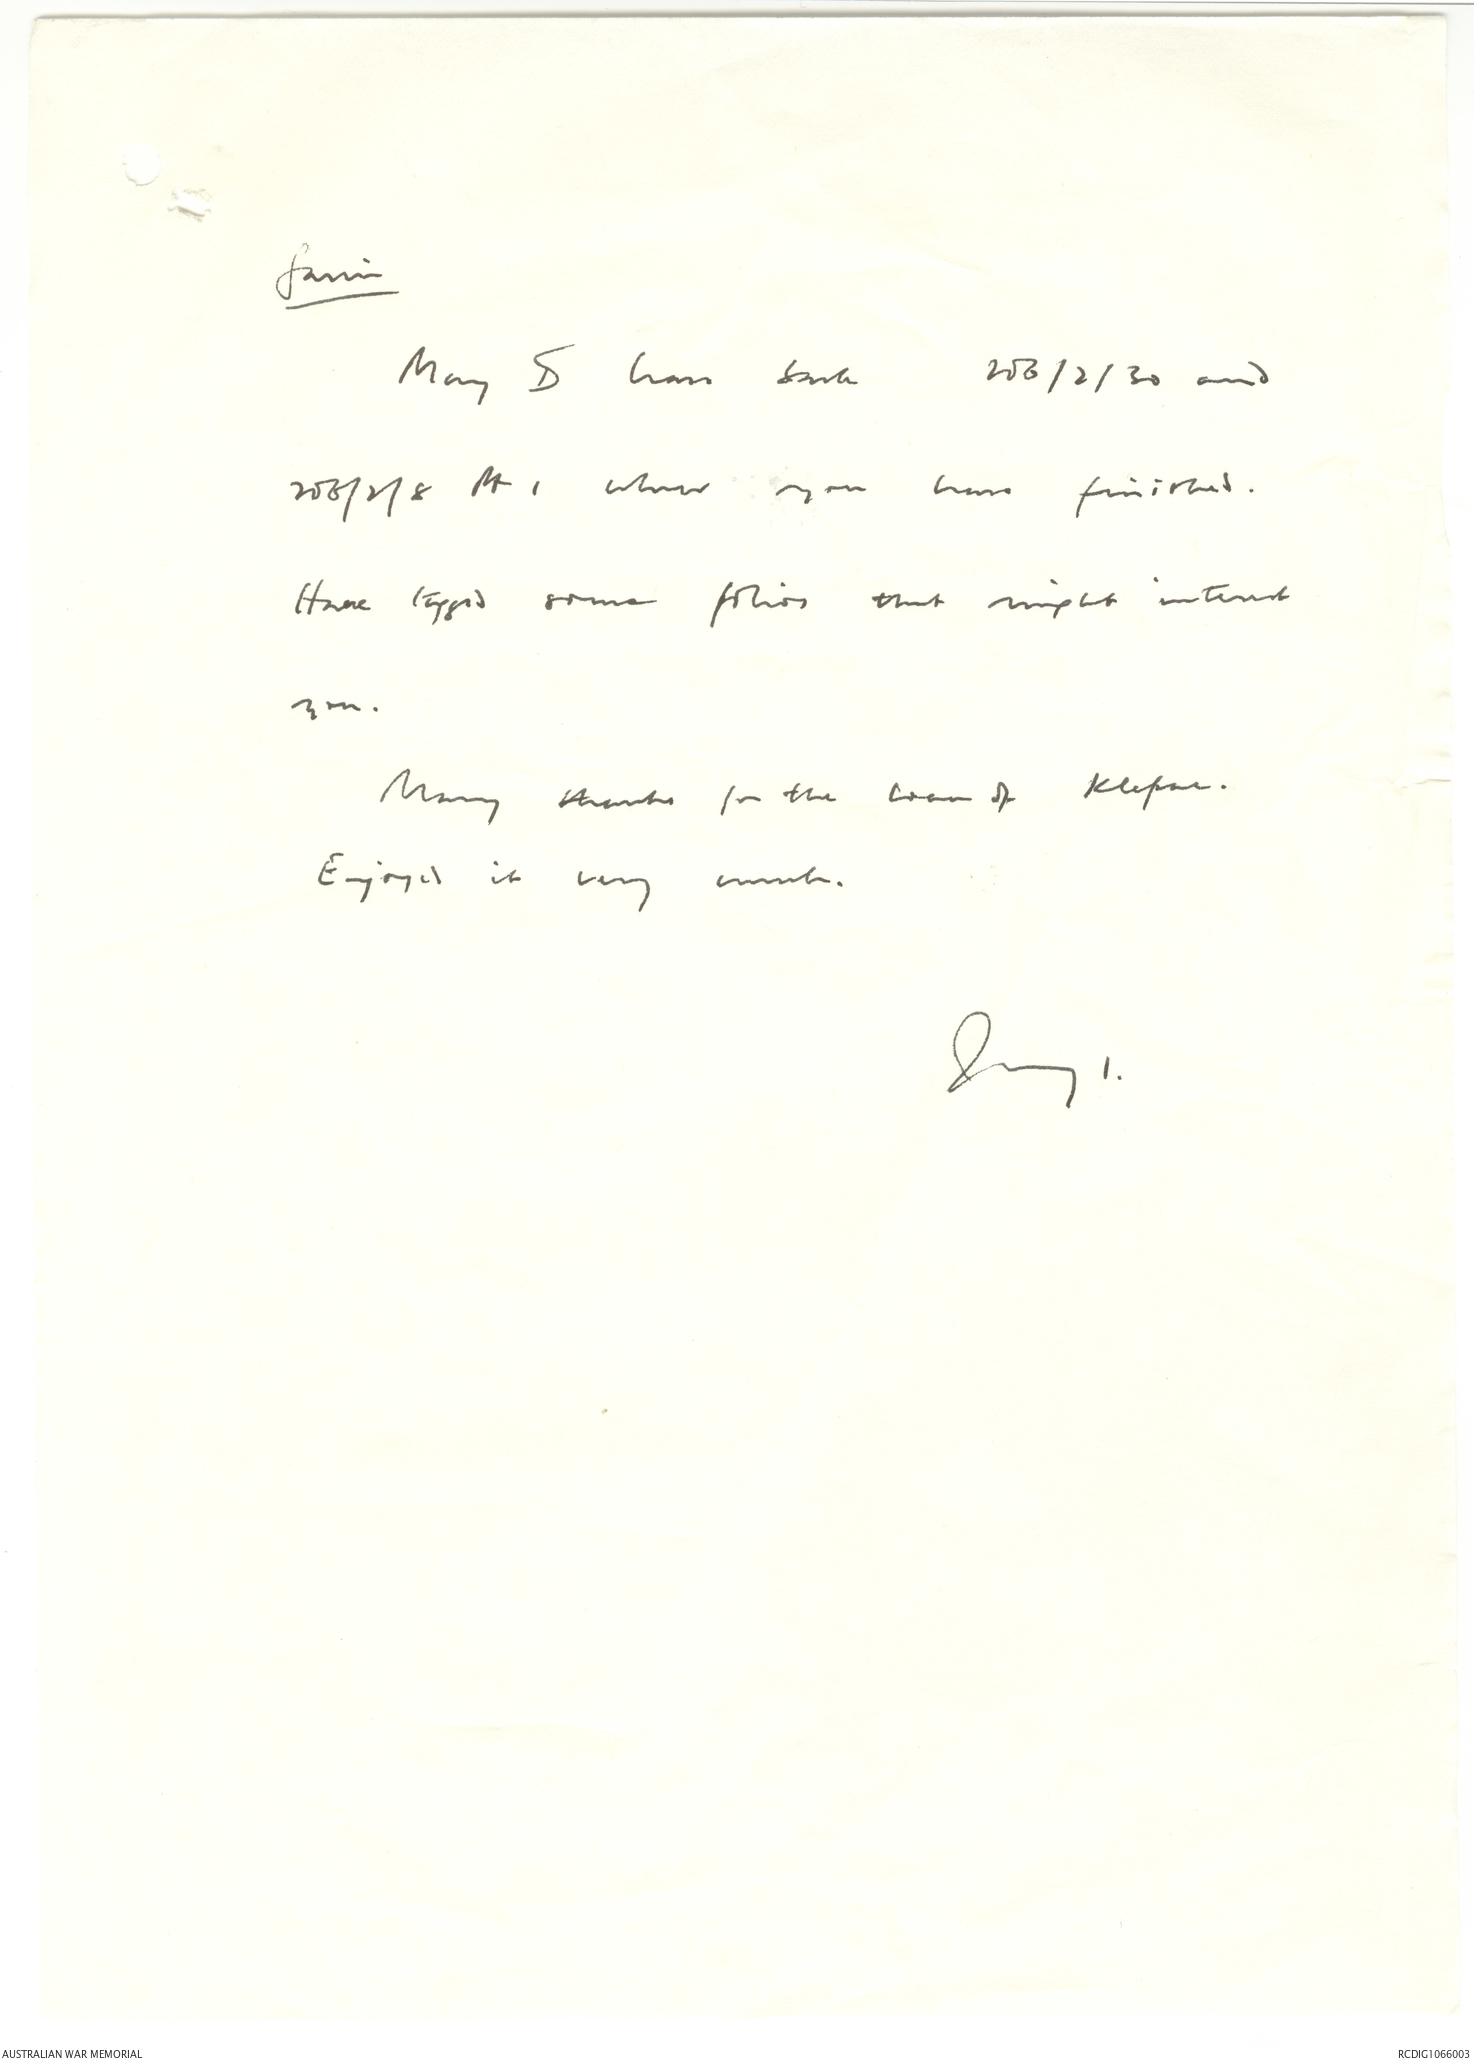 Gavin
May I have back 206/2/30 and
206/2/8 Pt 1 when you have finished.
Have tagged some folios that might interest
you.
Many thanks for the loan of Klepac.
Enjoyed it very much.
AUSTRALIAN WAR MEMORIAL
RCDIG1066003